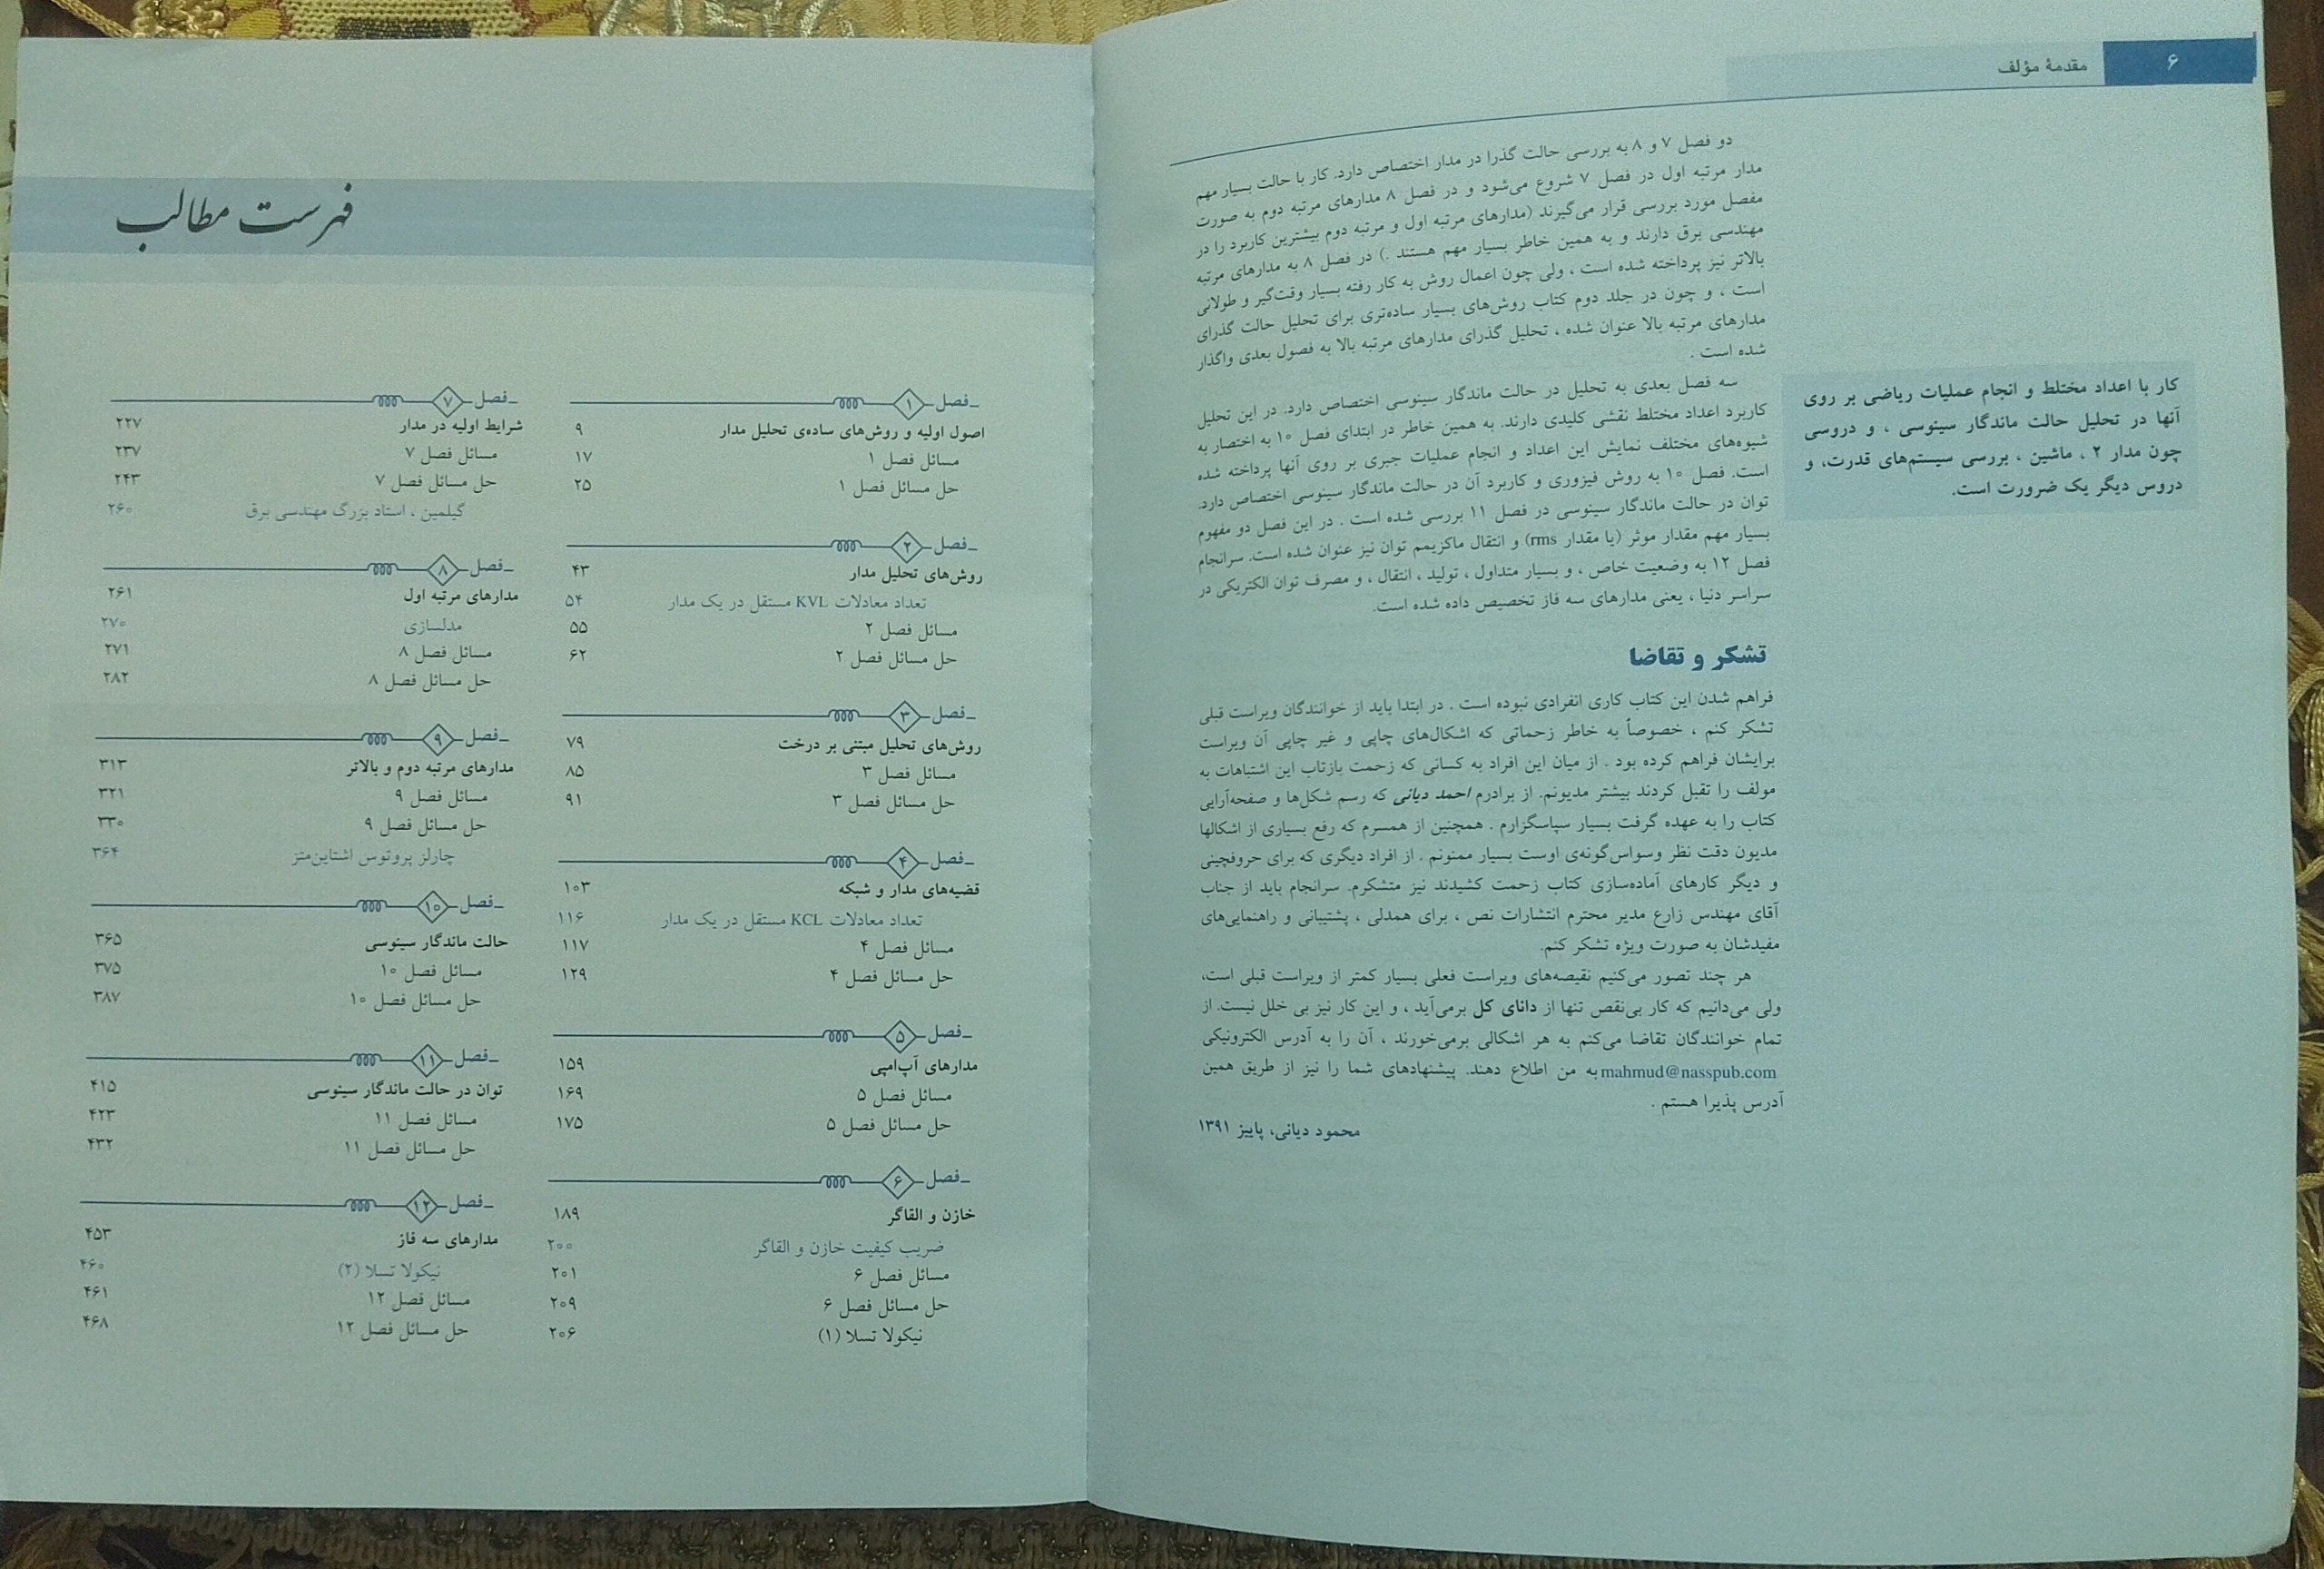 ۶
مقدمهٔ مؤلف
دو فصل ۷ و ۸ به بررسی حالت گذرا در مدار اختصاص دارد. کار با حالت بسیار مهم
مدار مرتبه اول در فصل ۷ شروع می‌شود و در فصل ۸ مدارهای مرتبه دوم به صورت
مفصل مورد بررسی قرار می‌گیرند (مدارهای مرتبه اول و مرتبه دوم بیشترین کاربرد را در
مهندسی برق دارند و به همین خاطر بسیار مهم هستند .) در فصل ۸ به مدارهای مرتبه
بالاتر نیز پرداخته شده است ، ولی چون اعمال روش به کار رفته بسیار وقت‌گیر و طولانی
است ، و چون در جلد دوم کتاب روش‌های بسیار ساده‌تری برای تحلیل حالت گذرای
مدارهای مرتبه بالا عنوان شده ، تحلیل گذرای مدارهای مرتبه بالا به فصول بعدی واگذار
شده است .
سه فصل بعدی به تحلیل در حالت ماندگار سینوسی اختصاص دارد. در این تحلیل
کاربرد اعداد مختلط نقشی کلیدی دارند. به همین خاطر در ابتدای فصل ۱۰ به اختصار به
شیوه‌های مختلف نمایش این اعداد و انجام عملیات جبری بر روی آنها پرداخته شده
است. فصل ۱۰ به روش فیزوری و کاربرد آن در حالت ماندگار سینوسی اختصاص دارد.
توان در حالت ماندگار سینوسی در فصل ۱۱ بررسی شده است . در این فصل دو مفهوم
بسیار مهم مقدار موثر (یا مقدار rms) و انتقال ماکزیمم توان نیز عنوان شده است. سرانجام
فصل ۱۲ به وضعیت خاص ، و بسیار متداول ، تولید ، انتقال ، و مصرف توان الکتریکی در
سراسر دنیا ، یعنی مدارهای سه فاز تخصیص داده شده است.
کار با اعداد مختلط و انجام عملیات ریاضی بر روی
آنها در تحلیل حالت ماندگار سینوسی ، و دروسی
چون مدار ۲ ، ماشین ، بررسی سیستم‌های قدرت، و
دروس دیگر یک ضرورت است.
تشکر و تقاضا
فراهم شدن این کتاب کاری انفرادی نبوده است . در ابتدا باید از خوانندگان ویراست قبلی
تشکر کنم ، خصوصاً به خاطر زحماتی که اشکال‌های چاپی و غیر چاپی آن ویراست
برایشان فراهم کرده بود . از میان این افراد به کسانی که زحمت بازتاب این اشتباهات به
مولف را تقبل کردند بیشتر مدیونم. از برادرم احمد دیانی که رسم شکل‌ها و صفحه‌آرایی
کتاب را به عهده گرفت بسیار سپاسگزارم . همچنین از همسرم که رفع بسیاری از اشکالها
مدیون دقت نظر وسواس‌گونه‌ی اوست بسیار ممنونم . از افراد دیگری که برای حروفچینی
و دیگر کارهای آماده‌سازی کتاب زحمت کشیدند نیز متشکرم. سرانجام باید از جناب
آقای مهندس زارع مدیر محترم انتشارات نص ، برای همدلی ، پشتیبانی و راهنمایی‌های
مفیدشان به صورت ویژه تشکر کنم.
هر چند تصور می‌کنیم نقیصه‌های ویراست فعلی بسیار کمتر از ویراست قبلی است،
ولی می‌دانیم که کار بی‌نقص تنها از دانای کل برمی‌آید ، و این کار نیز بی خلل نیست. از
تمام خوانندگان تقاضا می‌کنم به هر اشکالی برمی‌خورند ، آن را به آدرس الکترونیکی
mahmud@nasspub.com به من اطلاع دهند. پیشنهادهای شما را نیز از طریق همین
آدرس پذیرا هستم .
محمود دیانی، پاییز ۱۳۹۱
فهرست مطالب
فصل ۱
اصول اولیه و روش‌های ساده‌ی تحلیل مدار ۹
مسائل فصل ۱ ۱۷
حل مسائل فصل ۱ ۲۵
فصل ۲
روش‌های تحلیل مدار ۴۳
تعداد معادلات KVL مستقل در یک مدار ۵۴
مسائل فصل ۲ ۵۵
حل مسائل فصل ۲ ۶۲
فصل ۳
روش‌های تحلیل مبتنی بر درخت ۷۹
مسائل فصل ۳ ۸۵
حل مسائل فصل ۳ ۹۱
فصل ۴
قضیه‌های مدار و شبکه ۱۰۳
تعداد معادلات KCL مستقل در یک مدار ۱۱۶
مسائل فصل ۴ ۱۱۷
حل مسائل فصل ۴ ۱۲۹
فصل ۵
مدارهای آپ‌امپی ۱۵۹
مسائل فصل ۵ ۱۶۹
حل مسائل فصل ۵ ۱۷۵
فصل ۶
خازن و القاگر ۱۸۹
ضریب کیفیت خازن و القاگر ۲۰۰
مسائل فصل ۶ ۲۰۱
حل مسائل فصل ۶ ۲۰۹
نیکولا تسلا (۱) ۲۰۶
فصل ۷
شرایط اولیه در مدار ۲۲۷
مسائل فصل ۷ ۲۳۷
حل مسائل فصل ۷ ۲۴۳
گیلمین ، استاد بزرگ مهندسی برق ۲۶۰
فصل ۸
مدارهای مرتبه اول ۲۶۱
مدلسازی ۲۷۰
مسائل فصل ۸ ۲۷۱
حل مسائل فصل ۸ ۲۸۲
فصل ۹
مدارهای مرتبه دوم و بالاتر ۳۱۳
مسائل فصل ۹ ۳۲۱
حل مسائل فصل ۹ ۳۳۰
چارلز پروتوس اشتاین‌متز ۳۶۴
فصل ۱۰
حالت ماندگار سینوسی ۳۶۵
مسائل فصل ۱۰ ۳۷۵
حل مسائل فصل ۱۰ ۳۸۷
فصل ۱۱
توان در حالت ماندگار سینوسی ۴۱۵
مسائل فصل ۱۱ ۴۲۳
حل مسائل فصل ۱۱ ۴۳۲
فصل ۱۲
مدارهای سه فاز ۴۵۳
نیکولا تسلا (۲) ۴۶۰
مسائل فصل ۱۲ ۴۶۱
حل مسائل فصل ۱۲ ۴۶۸